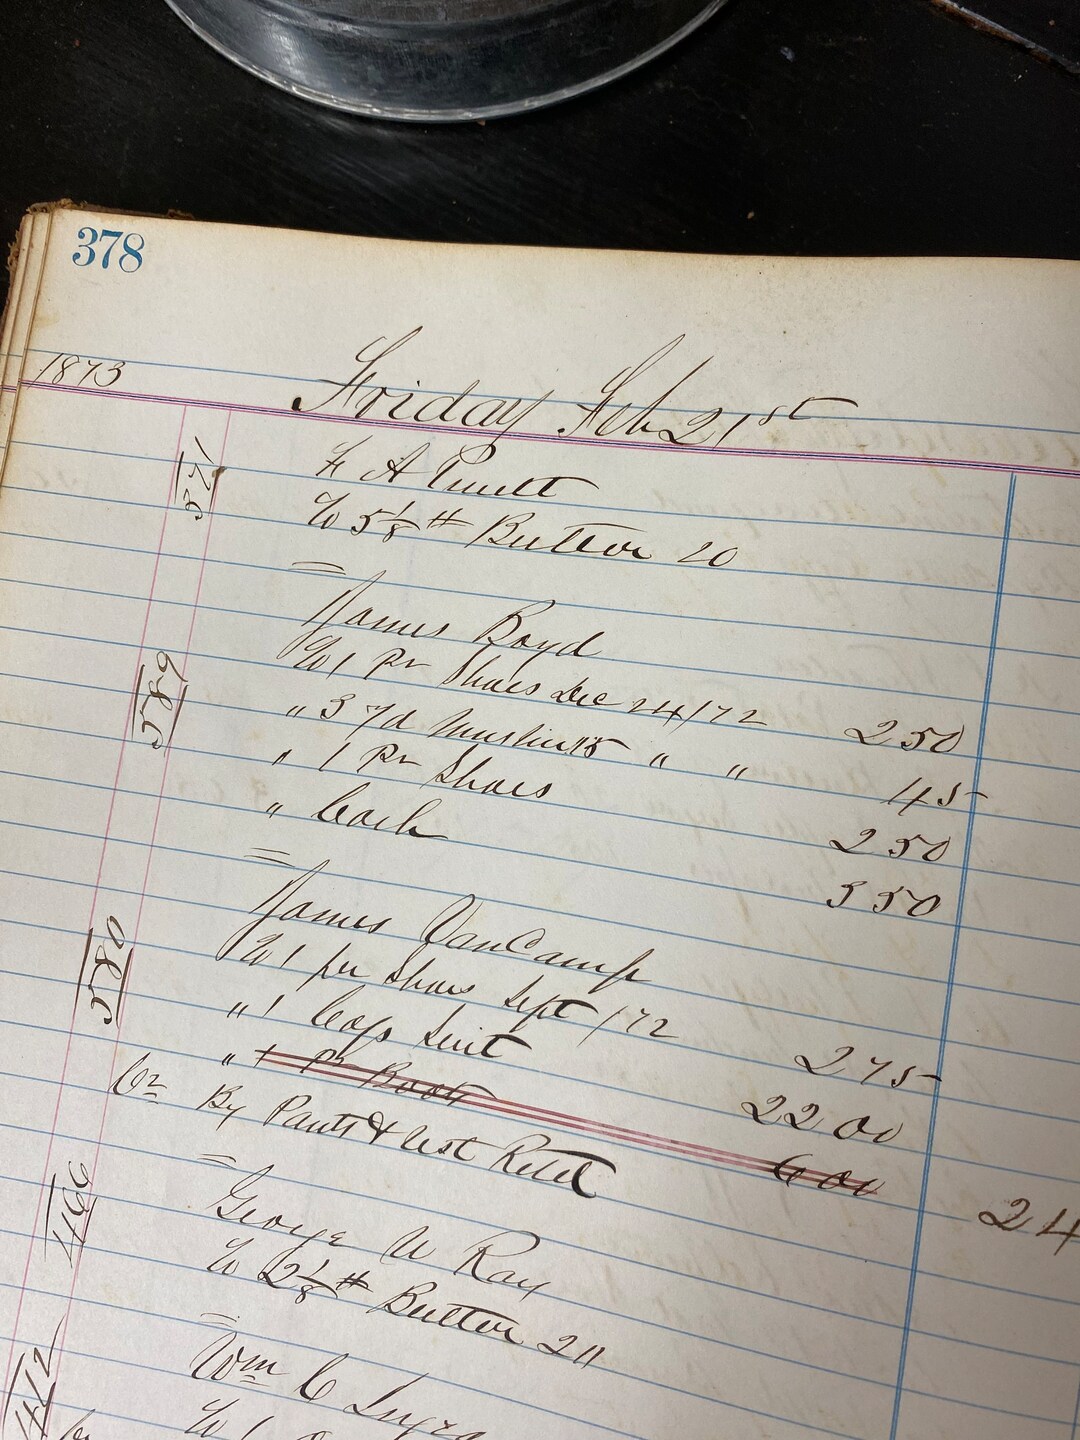 378
1873
Friday Feb 21st
571
F A Pruett
To 5 1/8 # Butter 20
589
James Boyd
To 1 pr Shoes Dec 24/72 250
" 3 yd Muslin 15 " " 45
" 1 pr Shoes 250
" Cash 350
580
James VanCamp
To 1 pr Shoes Sept /72 275
" 1 Cops Suit 2200
" 1 pr Boots 600
Cr By Pants & Vest Retd 24
466
George W Ray
To 2 1/8 # Butter 20
412
Wm C
To 1